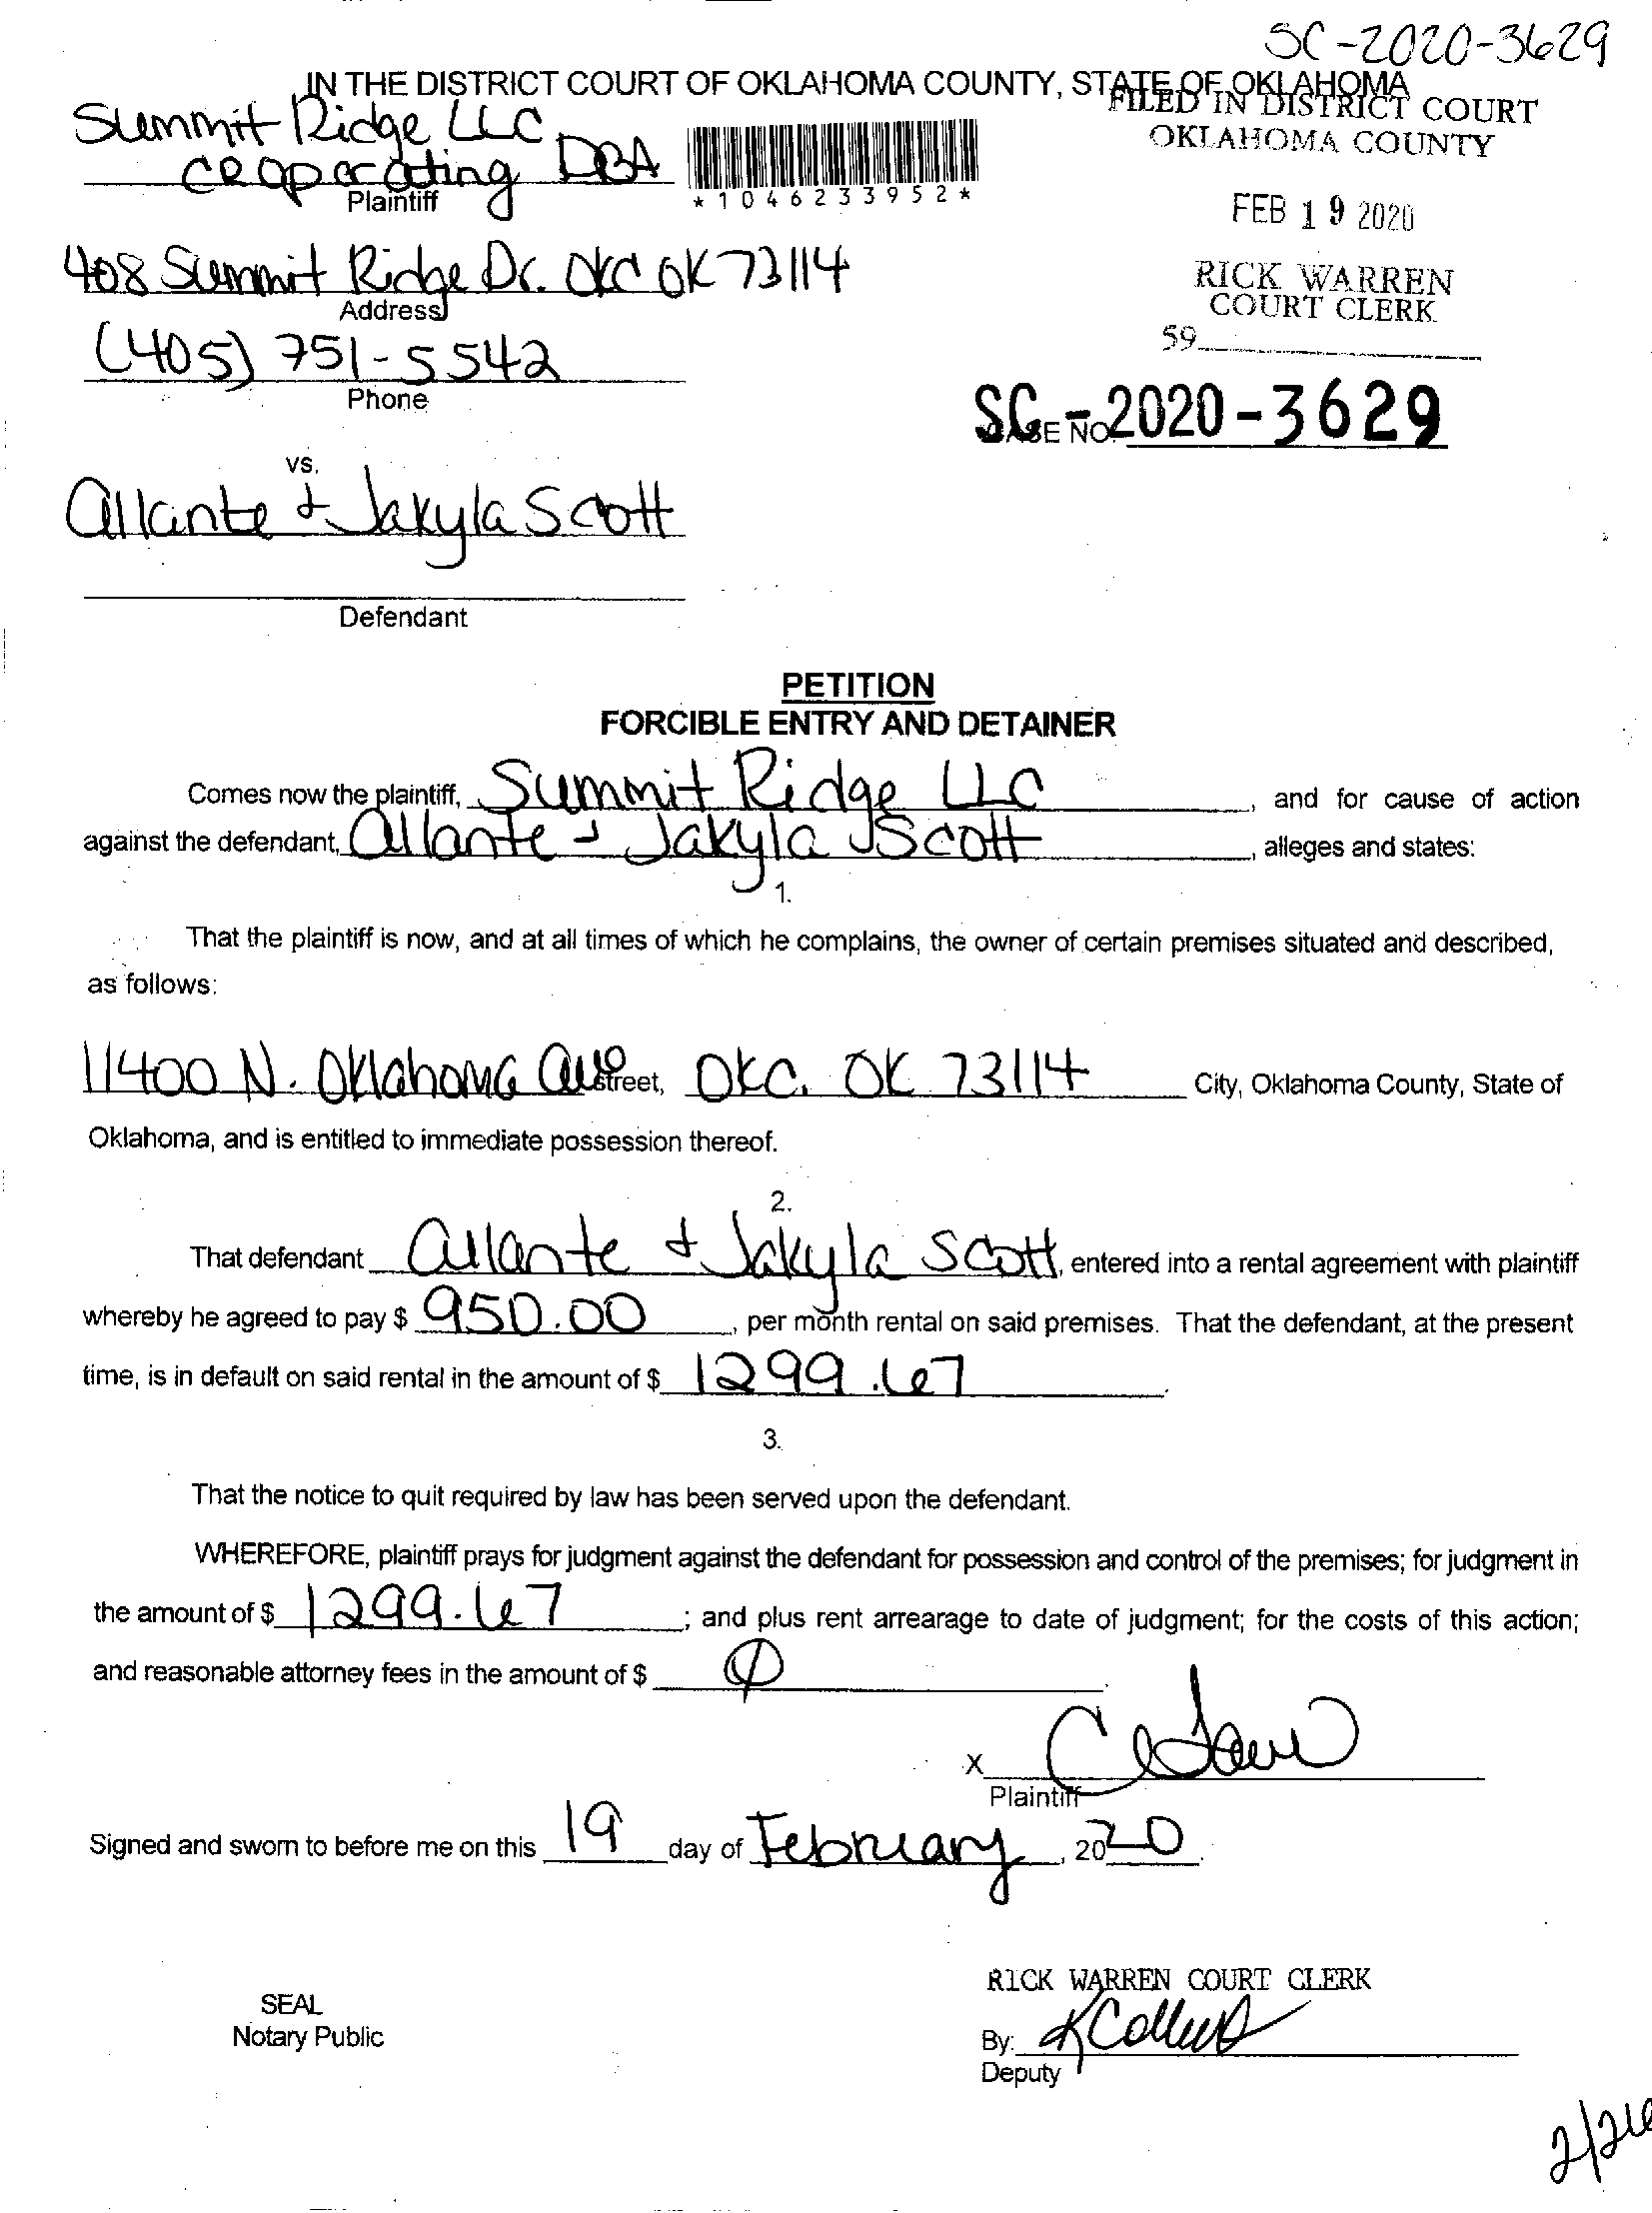 SC-2020-3629
IN THE DISTRICT COURT OF OKLAHOMA COUNTY, STATE OF OKLAHOMA
FILED IN DISTRICT COURT
OKLAHOMA COUNTY
Summit Ridge LLC
DBA
Plaintiff
*1046233952*
FEB 19 2020
408 Summit Ridge Dr. OKC OK 73114
Address
RICK WARREN
COURT CLERK
(405) 751-5542
Phone
59
SC-2020-3629
CASE NO.
vs.
Allante + Jakyla Scott
Defendant
PETITION
FORCIBLE ENTRY AND DETAINER
Comes now the plaintiff, Summit Ridge LLC, and for cause of action
against the defendant, Allante + Jakyla Scott, alleges and states:
1.
That the plaintiff is now, and at all times of which he complains, the owner of certain premises situated and described,
as follows:
11400 N. Oklahoma Ave Street, OKC. OK 73114 City, Oklahoma County, State of
Oklahoma, and is entitled to immediate possession thereof.
2.
That defendant Allante + Jakyla Scott, entered into a rental agreement with plaintiff
whereby he agreed to pay $ 950.00, per month rental on said premises. That the defendant, at the present
time, is in default on said rental in the amount of $ 1299.67.
3.
That the notice to quit required by law has been served upon the defendant.
WHEREFORE, plaintiff prays for judgment against the defendant for possession and control of the premises; for judgment in
the amount of $ 1299.67; and plus rent arrearage to date of judgment; for the costs of this action;
and reasonable attorney fees in the amount of $ 0.
X
Plaintiff
Signed and sworn to before me on this 19 day of February, 2020.
RICK WARREN COURT CLERK
SEAL
Notary Public
By: K Collins
Deputy
2/26